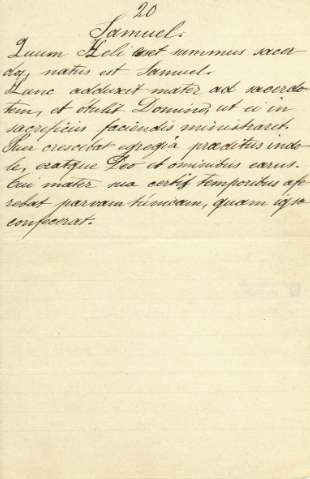 20
Samuel.
Quum Heli esset summus sacer
dos, natus est Samuel.
Hunc adduxit mater ad sacerdo
tem, et obtulit Domino, ut ei in
sacrificiis faciendis ministraret.
Puer crescebat egregia praeditus indo
le, eratque Deo et ominibus carus.
Cui mater sua certis temporibus affe
rebat parvam tunicam, quam ipsa
confecerat.